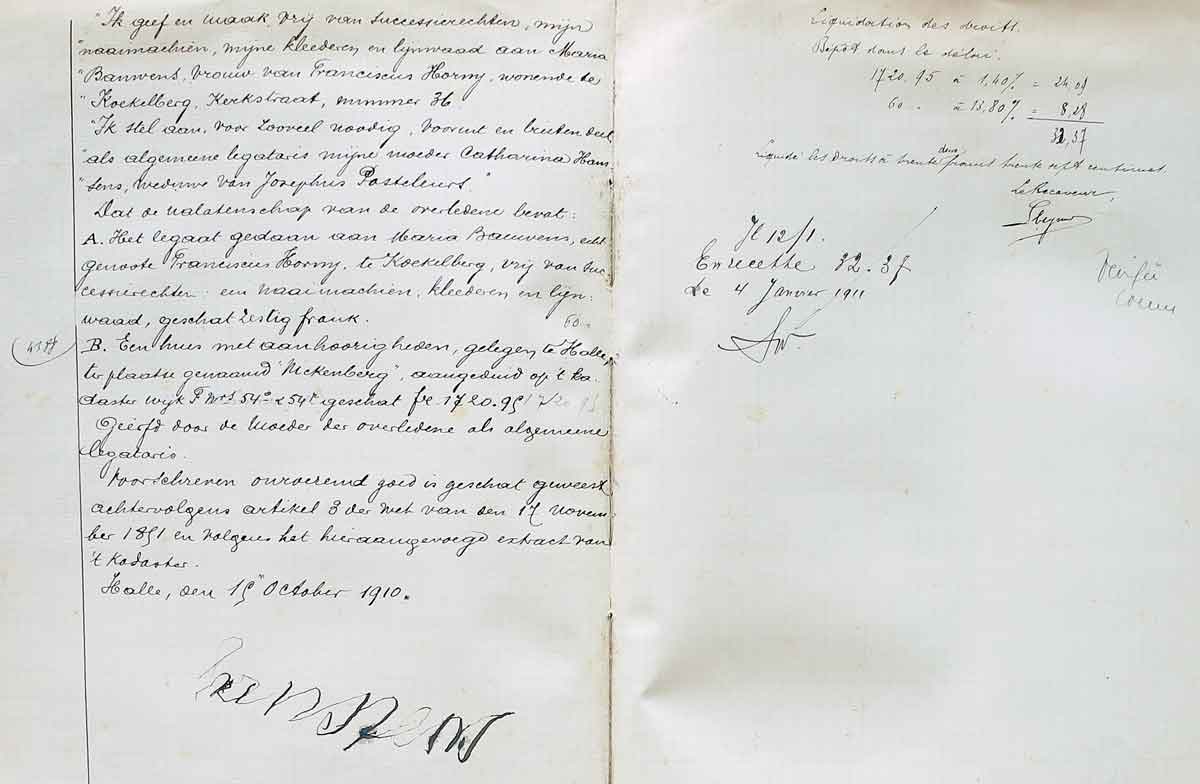 "Ik geef en maak vrij van successierechten, mijn
"naaimachien, mijne kleederen en lijnwaad aan Maria
"Bauwens, vrouw van Franciscus Horny, wonende te
"Koekelberg, Kerkstraat, nummer 36.
"Ik stel aan, voor zooveel noodig, vooruit en buiten deel
"als algemeene legataris mijne moeder Catharina Hans
"sens, weduwe van Josephus Pasteleurs."
Dat de nalatenschap van de overledene bevat:
A. Het legaat gedaan aan Maria Bauwens, echt
genoote Franciscus Horny, te Koekelberg, vrij van suc
cessierechten: een naaimachien, kleederen en lijn:
waad, geschat zestig frank. 60.
B. Een huis met aanhoorigheden, gelegen te Halle,
ter plaatse genaamd "Nickenberg", aangeduid op 't ka
daster wijk F Nrs 54 & 54 geschat fr. 1720.95 1720 95
Geërfd door de moeder der overledene als algemeene
legataris.
Voorschreven onroerend goed is geschat geweest
achtervolgens artikel 3 der wet van den 17 novem
ber 1851 en volgens het hieraangevoegd extract van
't Kadaster.
Halle, den 15n October 1910.
Liquidation des droits.
Dépôt dans le délai.
1720.95 à 1,40% = 24,09
60. à 13,80% = 8,28
32,37
Liquidé les droits à trente deux francs trente sept centimes.
Le Receveur,
Jl 12/1.
En recette 32.37
Le 4 Janvier 1911
Vérifié